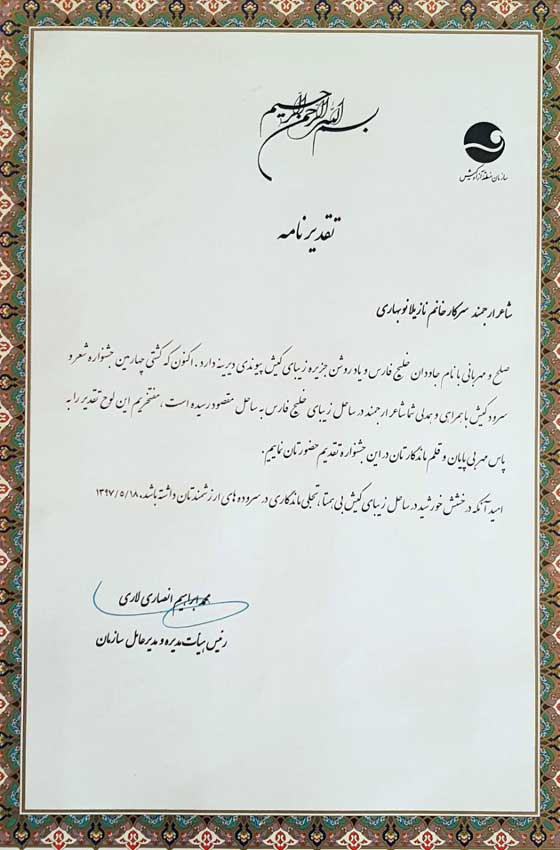 بسم الله الرحمن الرحیم
سازمان منطقه آزاد کیش
تقدیرنامه
شاعر ارجمند سرکار خانم نازیلا نوبهاری
صلح و مهربانی با نام جاودان خلیج فارس و یاد روشن جزیره زیبای کیش پیوندی دیرینه دارد. اکنون که کشتی چهارمین جشنواره شعر و
سرود کیش با همراهی و همدلی شما شاعر ارجمند در ساحل زیبای خلیج فارس به ساحل مقصود رسیده است، مفتخریم این لوح تقدیر را به
پاس مهر بی پایان و قلم ماندگارتان در این جشنواره تقدیم حضورتان نماییم.
امید آنکه درخشش خورشید در ساحل زیبای کیش بی همتا، تجلی ماندگاری در سروده های ارزشمندتان داشته باشد. ۱۳۹۷/۵/۱۸
محمد ابراهیم انصاری لاری
رئیس هیأت مدیره و مدیرعامل سازمان